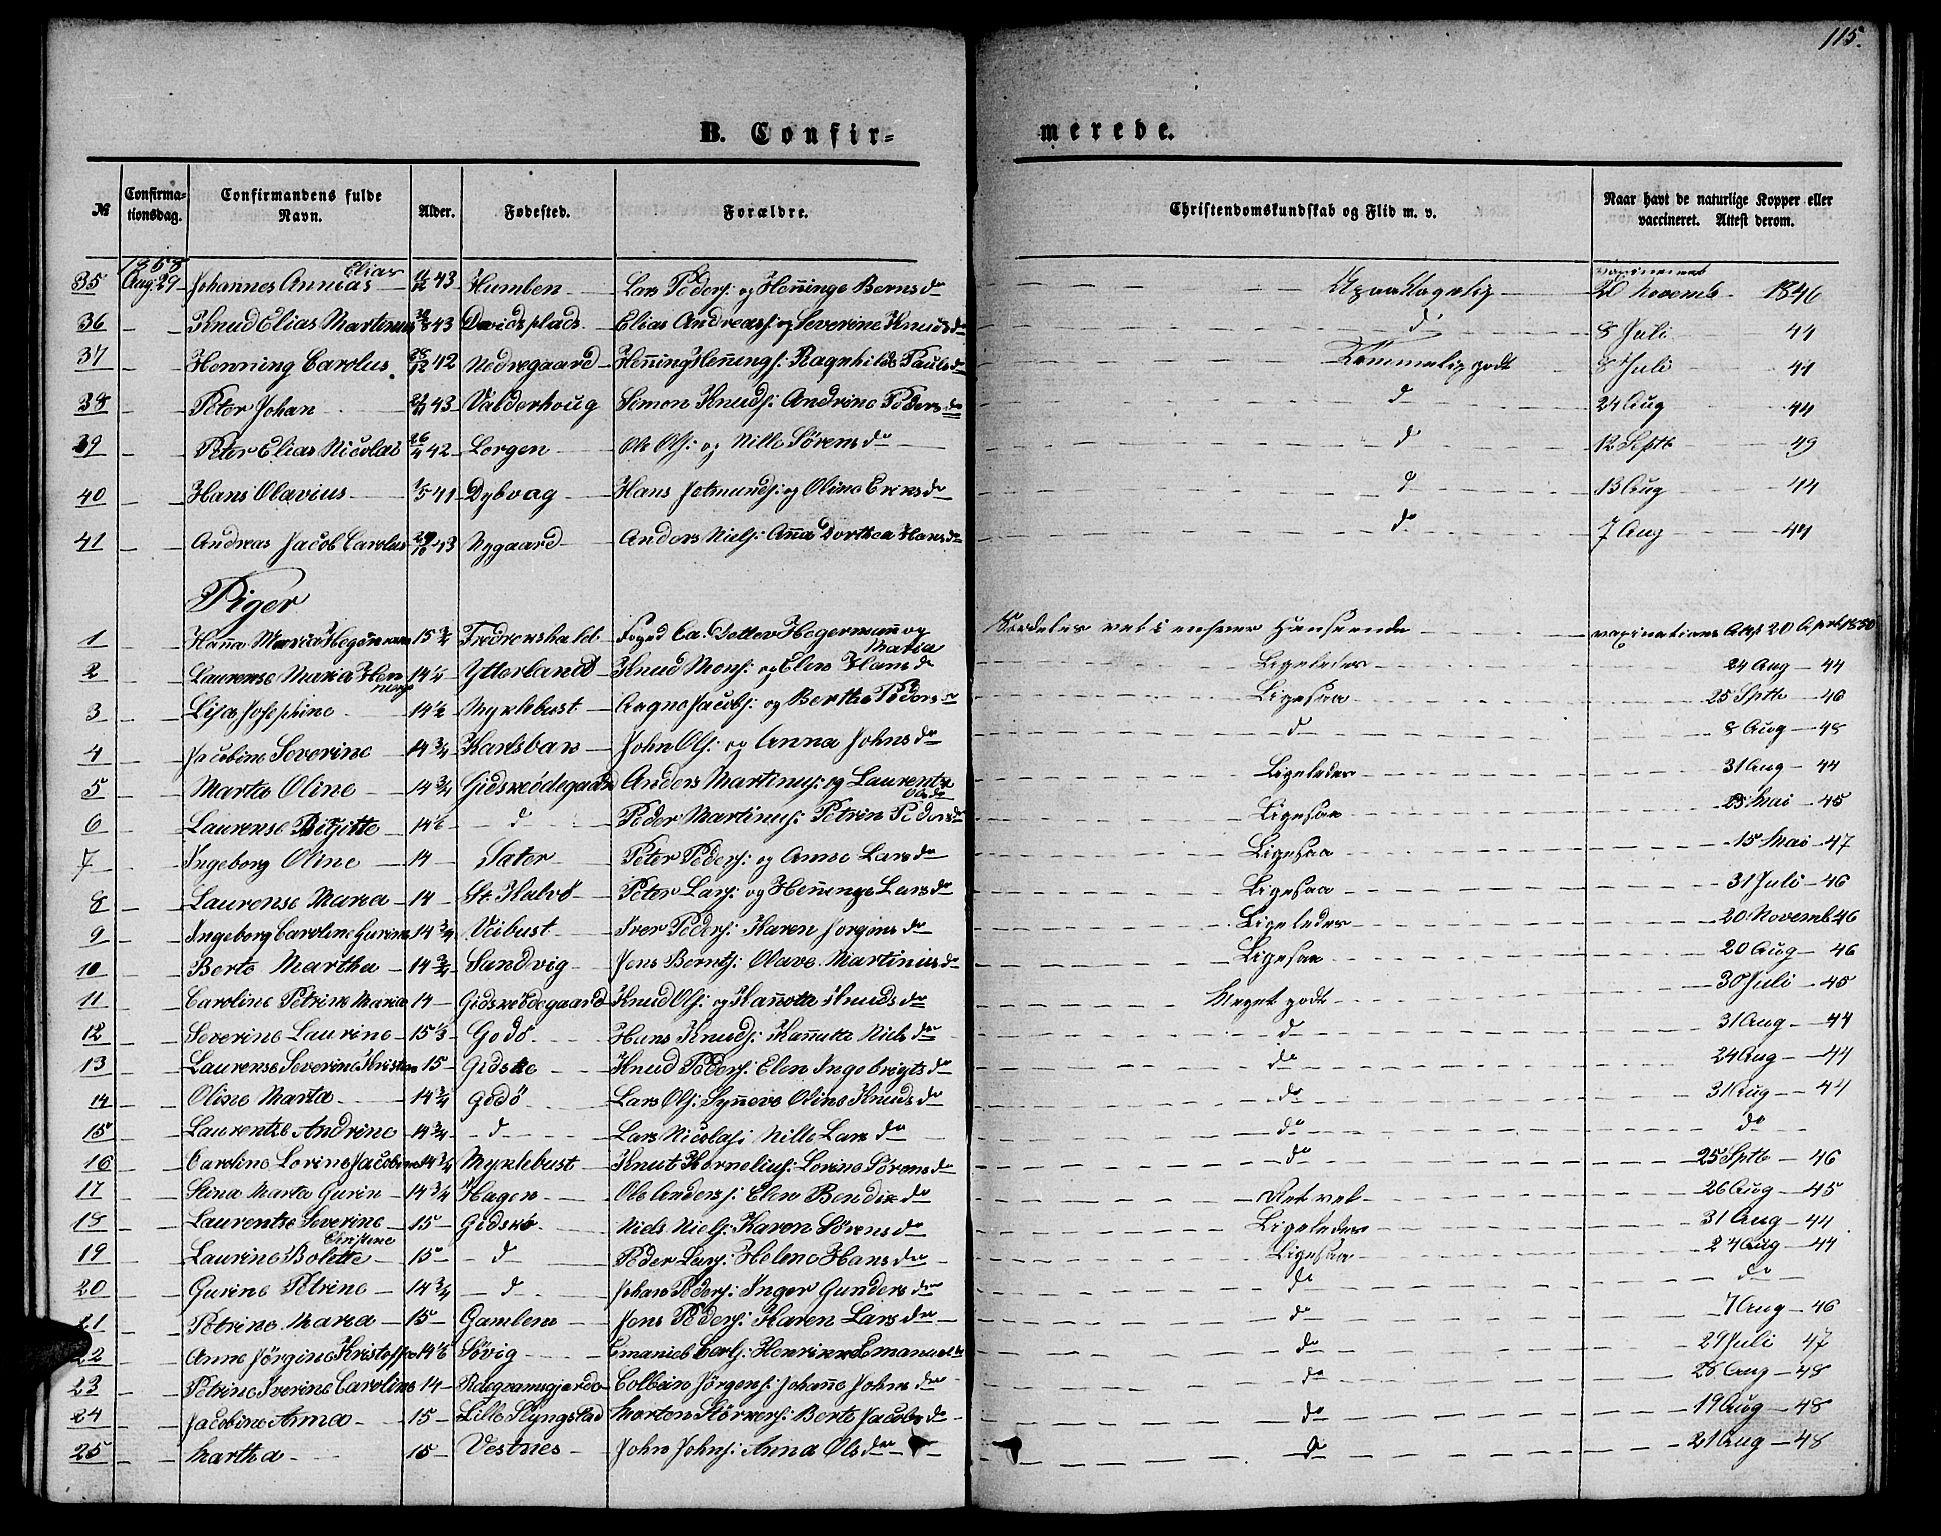 115.
B. Confir=
merede.
№ Confirma=tionsdag. Confirmandens fulde Navn. Alder. Fødested. Forældre. Christendomskundskab og Flid m. v. Naar havt de naturlige Kopper eller vaccineret. Attest derom.
1858 Elias
35 Aug 29 Johannes Annias 43 Humlen Lars Peders: og Henninge Bernsdr 20 Novemb 1846
36 Knud Elias Martinus 43 Davidsplads Elias Andreass: og Severine Knudsdr d 8 Juli 44
37 Henning Carolus 42 Nedregaard Henning Hennings: Ragnhilde Paulsdr Temmelig godt 8 Juli 44
38 Peter Johan 43 Valderhoug Simon Knuds: Andrine Pedersdr d 24 Aug 44
39 Peter Elias Nicolai 42 Lorgen Ole Ols: og Nille Sørensdr d 12 Septb 49
40 Hans Olavius 41 Dybvag Hans og Oline Eriksdr d 13 Aug 44
41 Andreas Jacob Carolus 43 Nygaard Anders Niels: Anna Dorthea Hansdr d 7 Aug 44
Piger
1 Hanna Maria Hegermann 15 3/4 Fredrikshald Foged Ca. Detlev Hegermann og Maria vaxinations Att 20 April 1850
2 Laurense Maria Henninge 14 Ytterland Knud Mons: og Elen Hansdr Ligeledes 24 Aug 44
3 Lisa Josephine 14 1/2 Myklebust Aagne Jacobs: og Berthe Pedersdr Ligesaa 25 Septb 46
4 Jacobine Severine 14 3/4 Karlsbar John Ols: og Anna Johnsdr d 8 Aug 48
5 Marta Oline 14 3/4 Gidskeødegaard Anders Martinus: og Laurentse Olsdr Ligeledes 31 Aug 44
6 Laurense Birgitte 14 d Peder Martinus: Petrin Pedersdr Ligesaa 25 Mai 45
7 Ingeborg Oline 14 Sæter Peter Peders: og Anne Larsdr Ligesaa 15 Mai 47
8 Laurense Maria 14 St. Kalvø Peter Lars: og Henninge Larsdr Ligesaa 31 Juli 46
9 Ingeborg Caroline Gurine 14 3/4 Veibust Iver Peders: Karen Jorgensdr Ligeledes 20 Novemb 46
10 Berte Martha 14 3/4 Sandvig Jens Bernts: Olave Martiniusdr Ligesaa 20 Aug 46
11 Caroline Petrine Maria 14 Gidskeødegaard Knud Ols: og Kanutta Knudsdr Meget godt 30 Juli 45
12 Severine Laurine 15 1/3 Godø Hans Knuds: Kanutta Nielsdr d 31 Aug 44
13 Laurense Severine Kristine 15 Gidske Knud Peders: Elen Ingebrigtsdr do 24 Aug 44
14 Oline Marta 14 3/4 Godø Lars Ols: Synneve Oline Knudsdr do 31 Aug 44
15 Laurentse Andrine 14 3/4 d Lars Nicolas: Nille Larsdr do do
16 Caroline Lovine Jacobine 14 3/4 Myklebust Knut Kornelius: Lovine Sørensdr do 25 Septb 46
17 Stina Marta Gurin 14 3/4 Hagen Ole Anders: Elen Bendikdr Ret vel 26 Aug 45
18 Laurentse Severine 15 Gidske Niels Niels: Karen Sørensdr Ligeledes 31 Aug 44
19 Laurine Bolette Christine 15 d Peder Lars: Helene Hansdr Ligesaa 24 Aug 44
20 Gurine Petrine 14 3/4 d Johan Peders: Inger Gundersdr do do
21 Petrine Maria 15 Gamlem Jens Peders: Karen Larsdr d 7 Aug 46
22 Anne Jørgine Kristoffa 14 Søvig Emaniel Carls: Henrikke Emanuelsdr do 29 Juli 47
23 Petrine Iverine Caroline 14 Colbein Jørgens: Johanne Johnsdr do 28 Aug 48
24 Jacobine Anna 15 Lille Slyngstad Morten Størkers: Berte Jacobsdr do 19 Aug 48
25 Martha 15 Vestnes John Johns: Anna Olsdr d 21 Aug 48